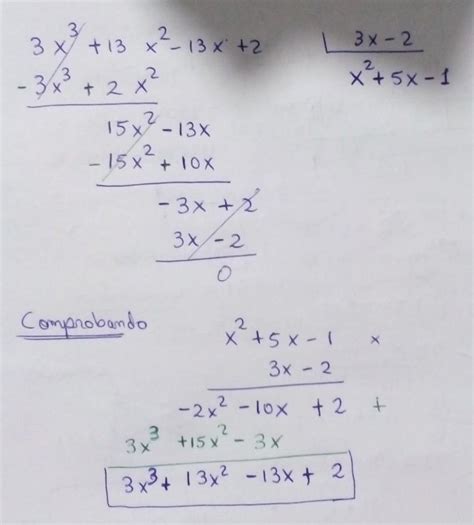 3x³ + 13 x² - 13x + 2 | 3x - 2
- 3x³ + 2 x² x² + 5x - 1
15x² - 13x
- 15x² + 10x
- 3x + 2
3x - 2
0
Comprobando
x² + 5x - 1 x
3x - 2
-2x² - 10x + 2 +
3x³ + 15x² - 3x
3x³ + 13x² - 13x + 2